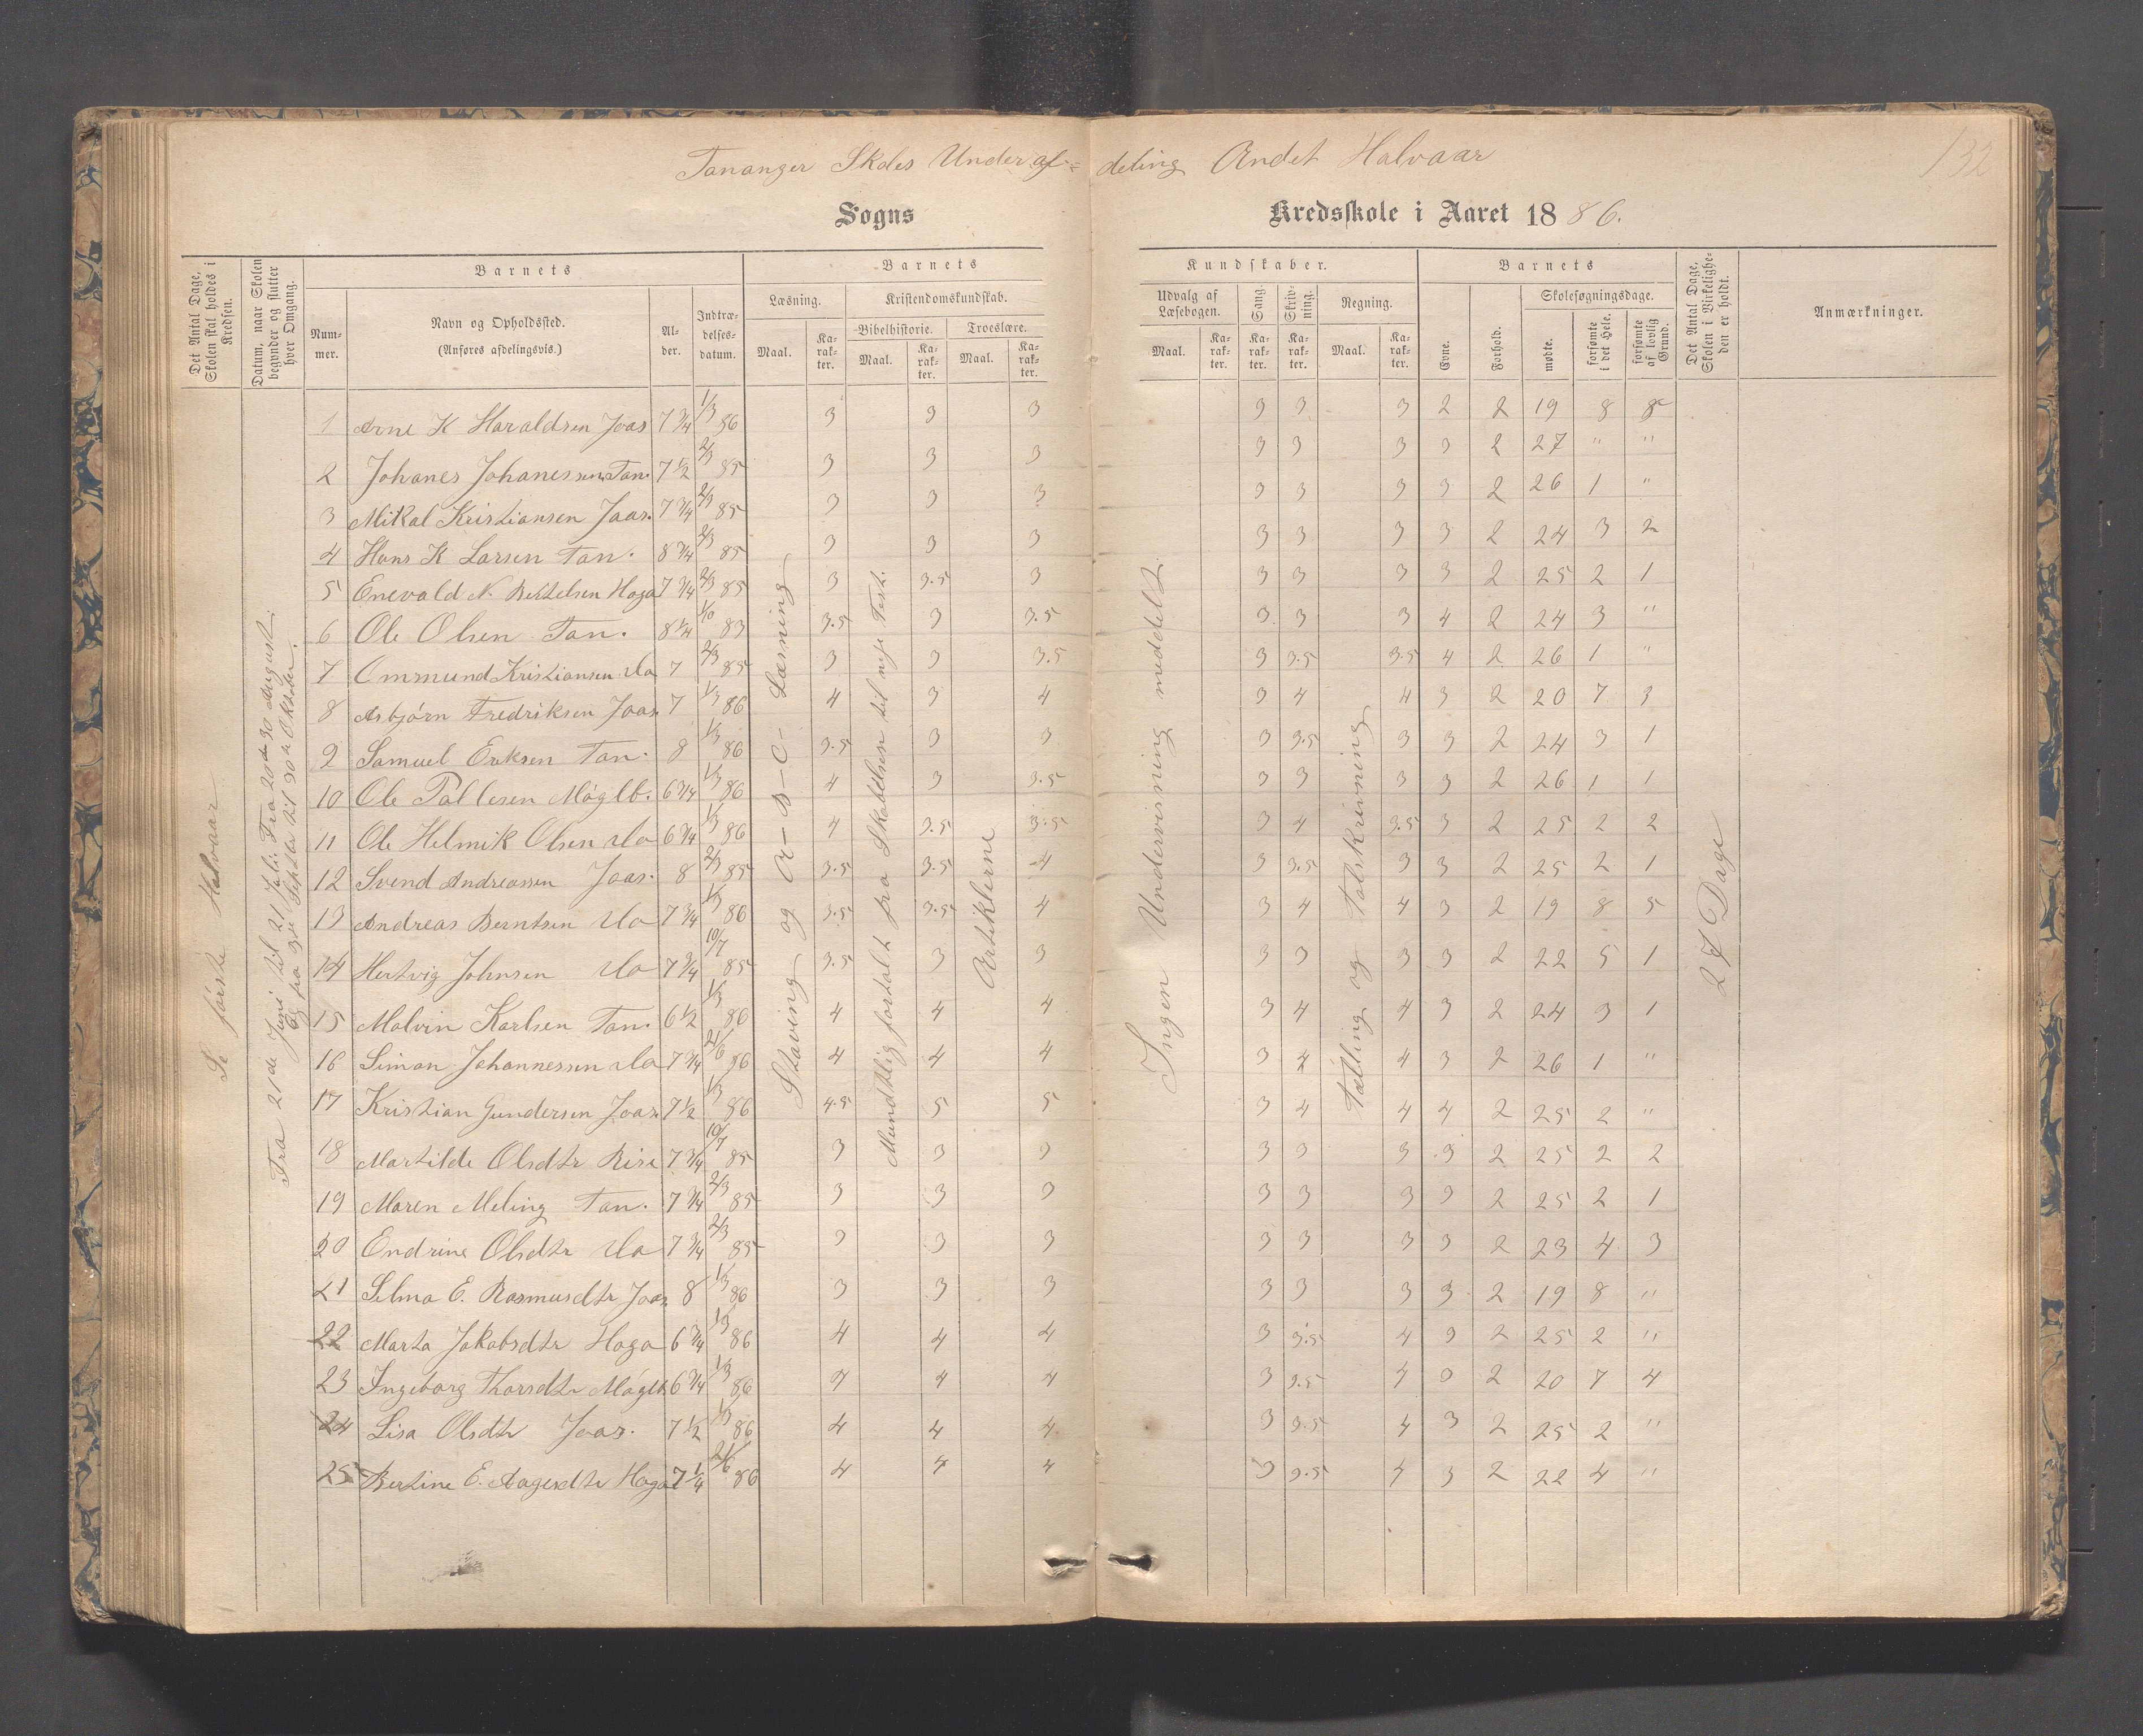 Tananger Skoles Underaf= deling Andet Halvaar
132
Sogns Kredsskole i Aaret 1886.
Det Antal Dage, Skolen skal holdes i Kredsen.
Datum, naar Skolen begynder og slutter hver Omgang.
Barnets
Num-mer.
Navn og Opholdssted.
(Anføres afdelingsvis.)
Al-der.
Indtræ-delses-datum.
Barnets Kundskaber.
Læsning.
Maal.
Ka-rak-ter.
Kristendomskundskab.
Bibelhistorie.
Maal.
Ka-rak-ter.
Troeslære.
Maal.
Ka-rak-ter.
Udvalg af Læsebogen.
Maal.
Ka-rak-ter.
Sang.
Ka-rak-ter.
Skriv-ning.
Ka-rak-ter.
Regning.
Maal.
Ka-rak-ter.
Barnets
Evne.
Forhold.
Skolesøgningsdage.
mødte.
forsømte i det Hele.
forsømte af lovlig Grund.
Det Antal Dage, Skolen i Virkelighe-den er holdt.
Anmærkninger.
Se første Halvaar
Fra 21de Juni til 21 Juli. Fra 20de - 30 August.
Og fra 3die Septbr til 30te Oktober.
Staving og A-B-C-Læsning
Mundtlig fortalt fra Skabelsen til nye Test.
Artiklerne
Ingen Undervisning meddelt
Tælling og Talskrivning
27 Dage
1 Arne K Haraldsen Jaas 7 3/4 1/3 86 3 3 3 3 3 3 2 2 19 8 8
2 Johanes Johanessen Tan. 7 1/2 2/3 85 3 3 3 3 3 3 3 2 27 " "
3 Mikal Kristiansen Jaas. 7 3/4 2/3 85 3 3 3 3 3 3 3 2 26 1 "
4 Hans K Larsen Tan. 8 3/4 2/3 85 3 3 3 3 3 3 3 2 24 3 2
5 Enevald N. Bertelsen Haga 7 3/4 2/3 85 3 3.5 3 3 3 3 3 2 25 2 1
6 Ole Olsen Tan. 8 1/4 1/10 83 3.5 3 3.5 3 3 3 4 2 24 3 "
7 Ommund Kristiansen Do 7 2/3 85 3 3 3.5 3 3.5 3.5 4 2 26 1 "
8 Asbjørn Fredriksen Jaas. 7 1/3 86 4 3 4 3 4 4 3 2 20 7 3
9 Samuel Eriksen Tan. 8 1/3 86 3.5 3 3 3 3.5 3 3 2 24 3 1
10 Ole Pallesen Møglb. 6 3/4 1/3 86 4 3 3.5 3 3 3 3 2 26 1 1
11 Ole Helmik Olsen Do 6 3/4 1/3 86 4 3.5 3.5 3 4 3.5 3 2 25 2 2
12 Svend Andreassen Jaas. 8 2/3 85 3.5 3.5 4 3 3.5 3 3 2 25 2 1
13 Andreas Berntsen Do 7 3/4 1/3 86 3.5 3.5 4 3 4 4 3 2 19 8 5
14 Hertvig Johnsen Do 7 3/4 10/7 85 3.5 3 3 3 3 3 3 2 22 5 1
15 Malvin Karlsen Tan. 6 1/2 1/3 86 4 4 4 3 4 4 3 2 24 3 1
16 Simon Johannessen Do 7 3/4 21/6 86 4 4 4 3 4 4 3 2 26 1 "
17 Kristian Gundersen Jaas. 7 1/2 1/3 86 4.5 5 5 3 4 4 4 2 25 2 "
18 Martilde Olsdtr Risa 7 3/4 10/7 85 3 3 3 3 3 3 3 2 25 2 2
19 Maren Meling Tan. 7 3/4 2/3 85 3 3 3 3 3 3 3 2 25 2 1
20 Endrine Olsdtr Do 7 3/4 2/3 85 3 3 3 3 3 3 3 2 23 4 3
21 Selma E. Rasmusdtr Jaas. 8 1/3 86 3 3 3 3 3 3 3 2 19 8 "
22 Marta Jakobsdtr Haga 6 3/4 1/3 86 4 4 4 3 3.5 4 3 2 25 2 "
23 Ingeborg Thorsdtr Møglb 6 3/4 1/3 86 4 4 4 3 3.5 4 3 2 20 7 4
24 Lisa Olsdtr Jaas. 7 1/2 1/3 86 4 4 4 3 3.5 4 3 2 25 2 "
25 Bertine E. Aagesdtr Haga 7 1/4 21/6 86 4 4 4 3 3.5 4 3 2 22 4 "